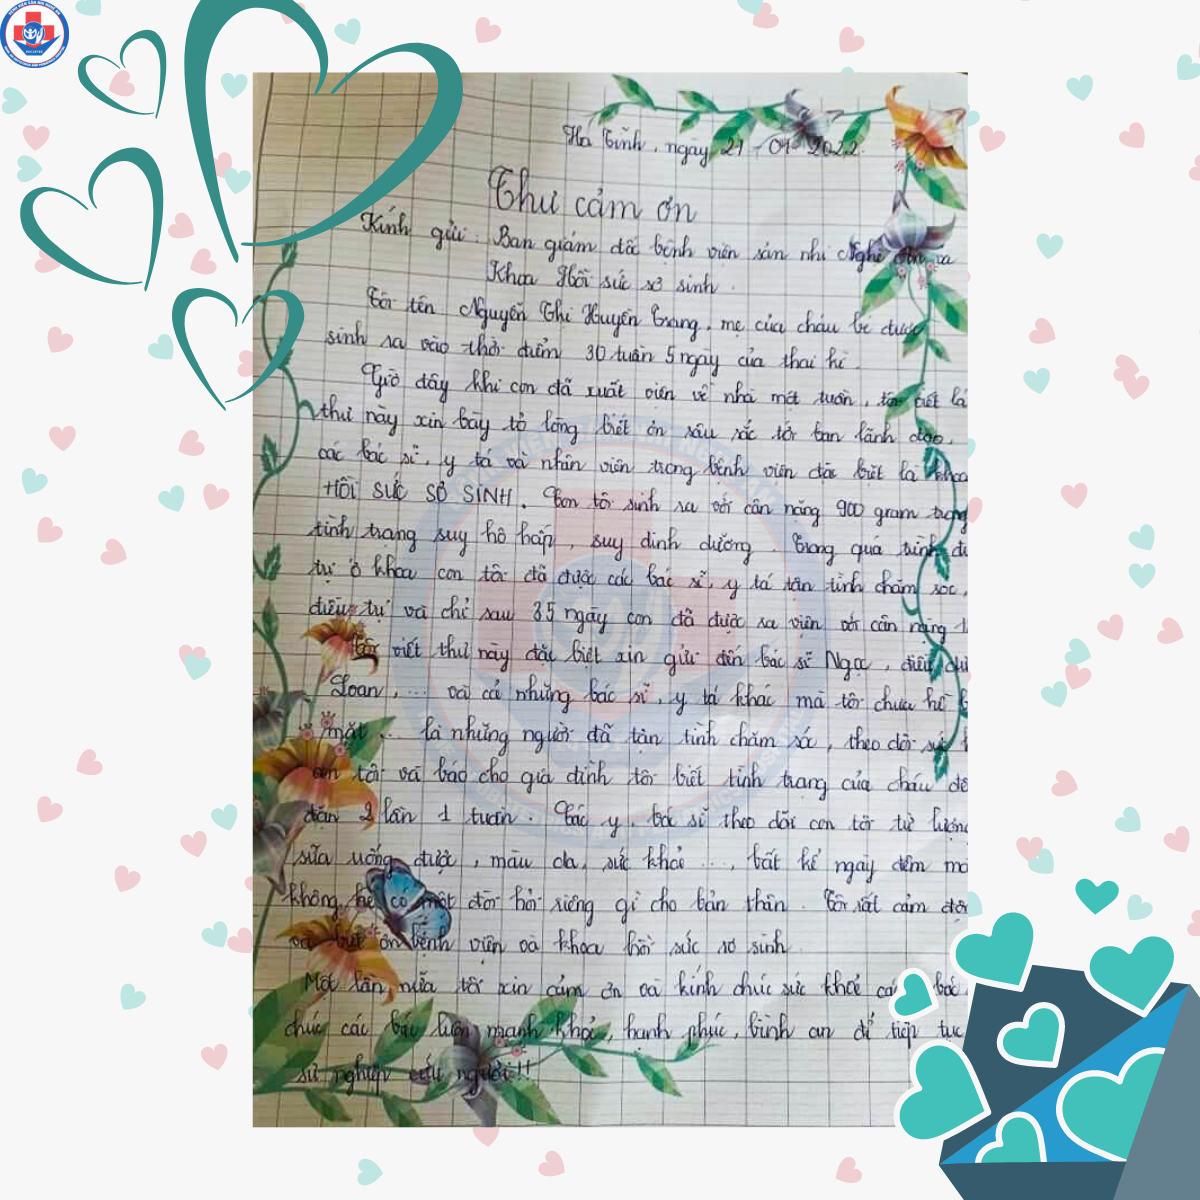 Hà Tĩnh, ngày 21-04-2022
Thư cảm ơn
Kính gửi: Ban giám đốc bệnh viện sản nhi Nghệ An và
Khoa Hồi sức sơ sinh.
Tôi tên Nguyễn Thị Huyền Trang, mẹ của cháu bé được
sinh ra vào thời điểm 30 tuần 5 ngày của thai kì.
Giờ đây khi con đã xuất viện về nhà một tuần, tôi viết lá
thư này xin bày tỏ lòng biết ơn sâu sắc tới ban lãnh đạo,
các bác sĩ, y tá và nhân viên trong bệnh viện đặc biệt là khoa
HỒI SỨC SƠ SINH. Con tôi sinh ra với cân nặng 900 gram trong
tình trạng suy hô hấp, suy dinh dưỡng. Trong quá trình
trị ở khoa con tôi đã được các bác sĩ, y tá tận tình chăm sóc,
điều trị và chỉ sau 35 ngày con đã được ra viện với cân nặng
Tôi viết thư này đặc biệt xin gửi đến bác sĩ Ngọc, điều
Loan, ... và cả những bác sĩ, y tá khác mà tôi chưa hề
mặt ... là những người đã tận tình chăm sóc, theo dõi sức
con tôi và báo cho gia đình tôi biết tình trạng của cháu đều
đặn 2 lần 1 tuần. Các y, bác sĩ theo dõi con tôi từ lượng
sữa uống được, màu da, sức khỏe ..., bất kể ngày đêm mà
không hề có một đòi hỏi riêng gì cho bản thân. Tôi rất cảm động
và biết ơn bệnh viện và khoa hồi sức sơ sinh.
Một lần nữa tôi xin cảm ơn và kính chúc sức khoẻ các bác
chúc các bác luôn mạnh khỏe, hạnh phúc, bình an để tiếp tục
sự nghiệp cứu người!!